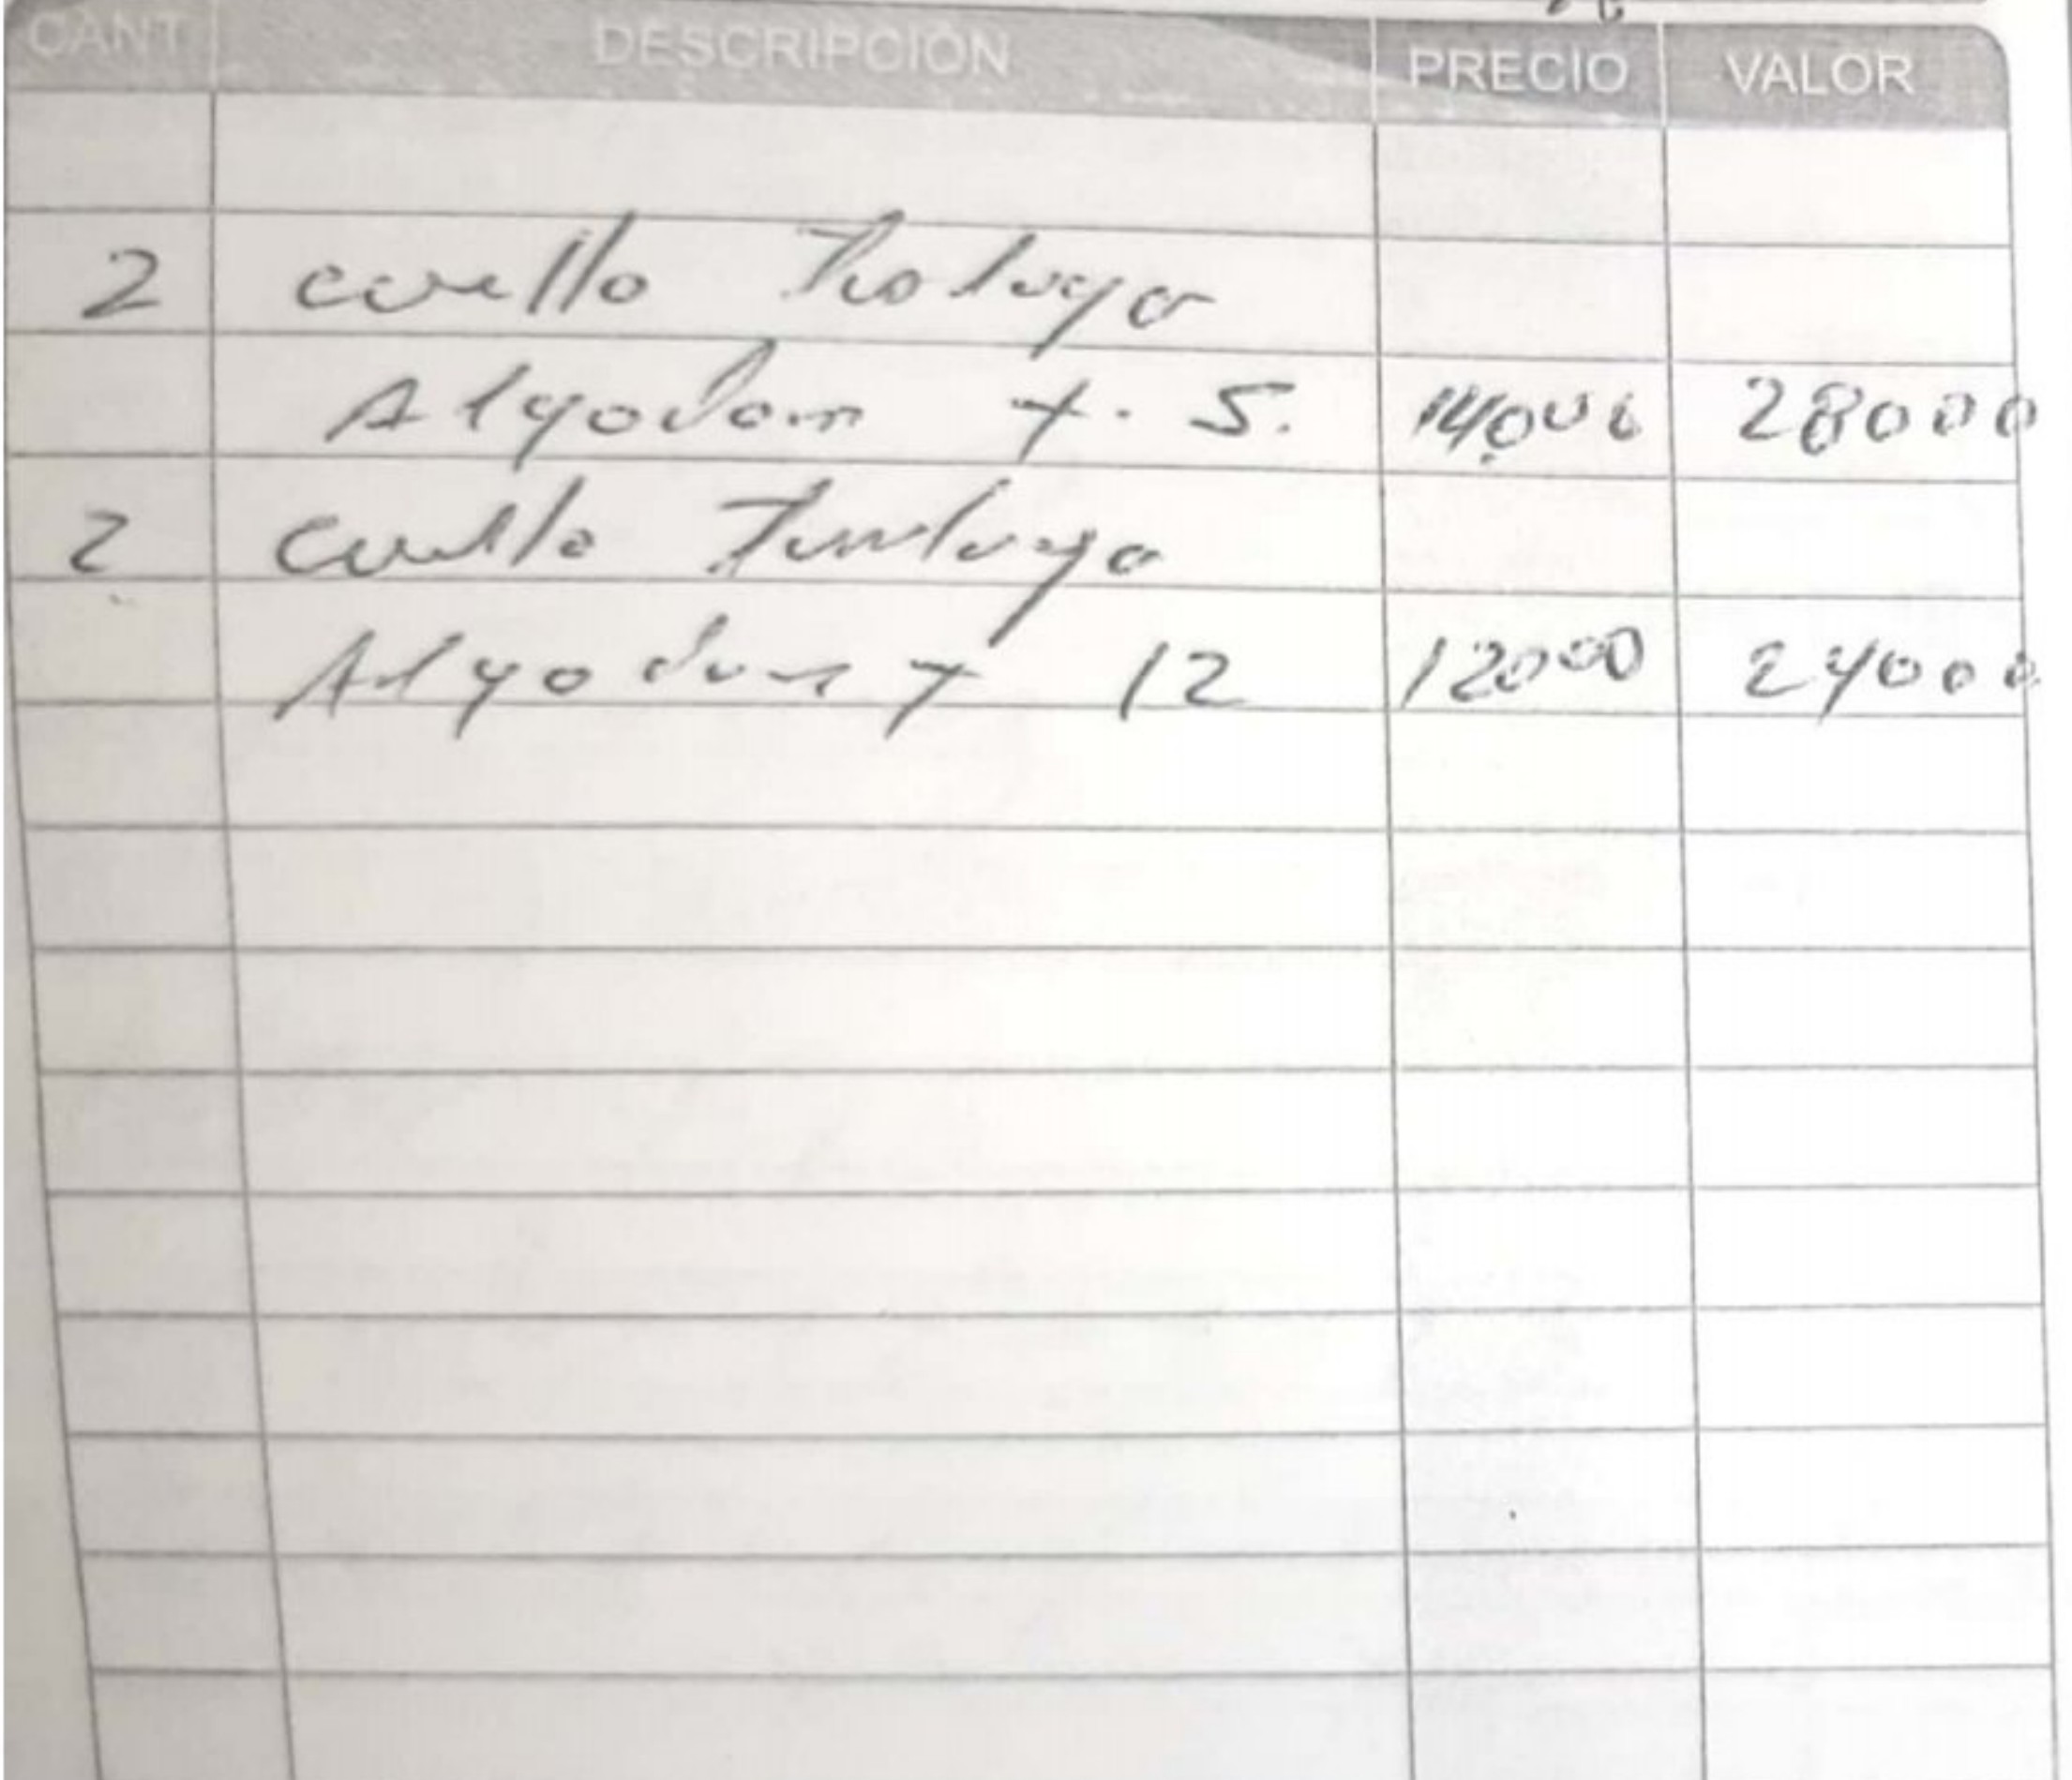 CANT DESCRIPCIÓN PRECIO VALOR
2 cuello
Algodon x. 5. 14000 28000
2 cuello
Algodon x 12 12000 24000